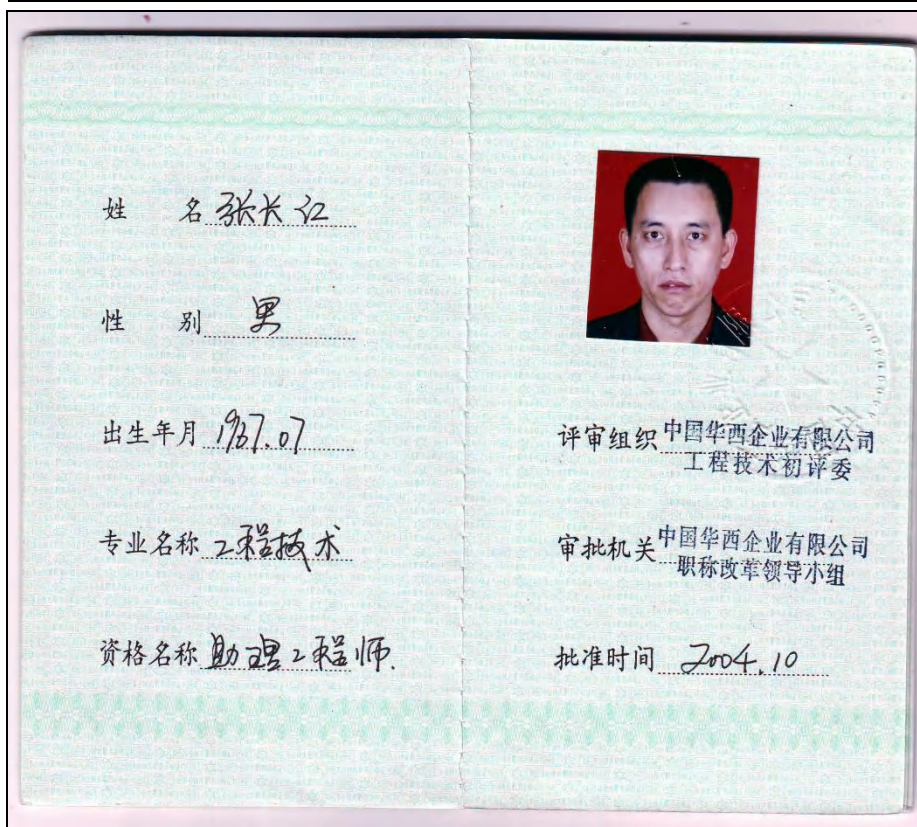 姓 名 张长江
性 别 男
出生年月 1967.07
专业名称 工程技术
资格名称 助理工程师.
评审组织 中国华西企业有限公司
工程技术初评委
审批机关 中国华西企业有限公司
职称改革领导小组
批准时间 2004.10